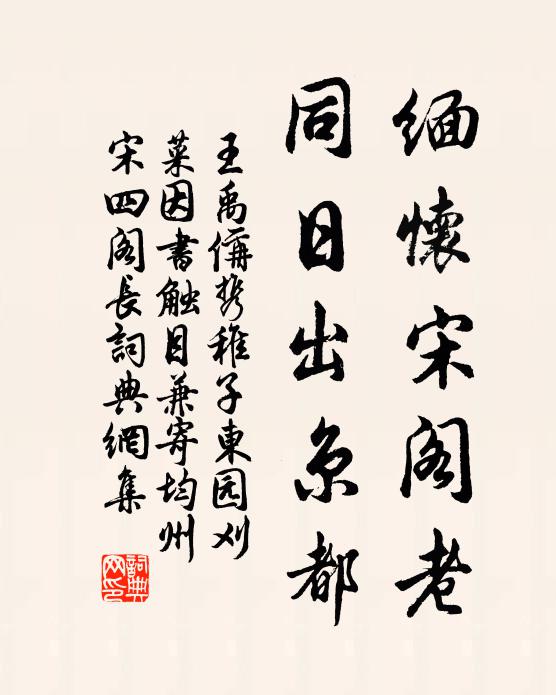 缅懷宋阁老
同日出京都
王禹偁携稚子東园刈
菜因書触目兼寄均州
宋四阁長詞典網集
詞典网印